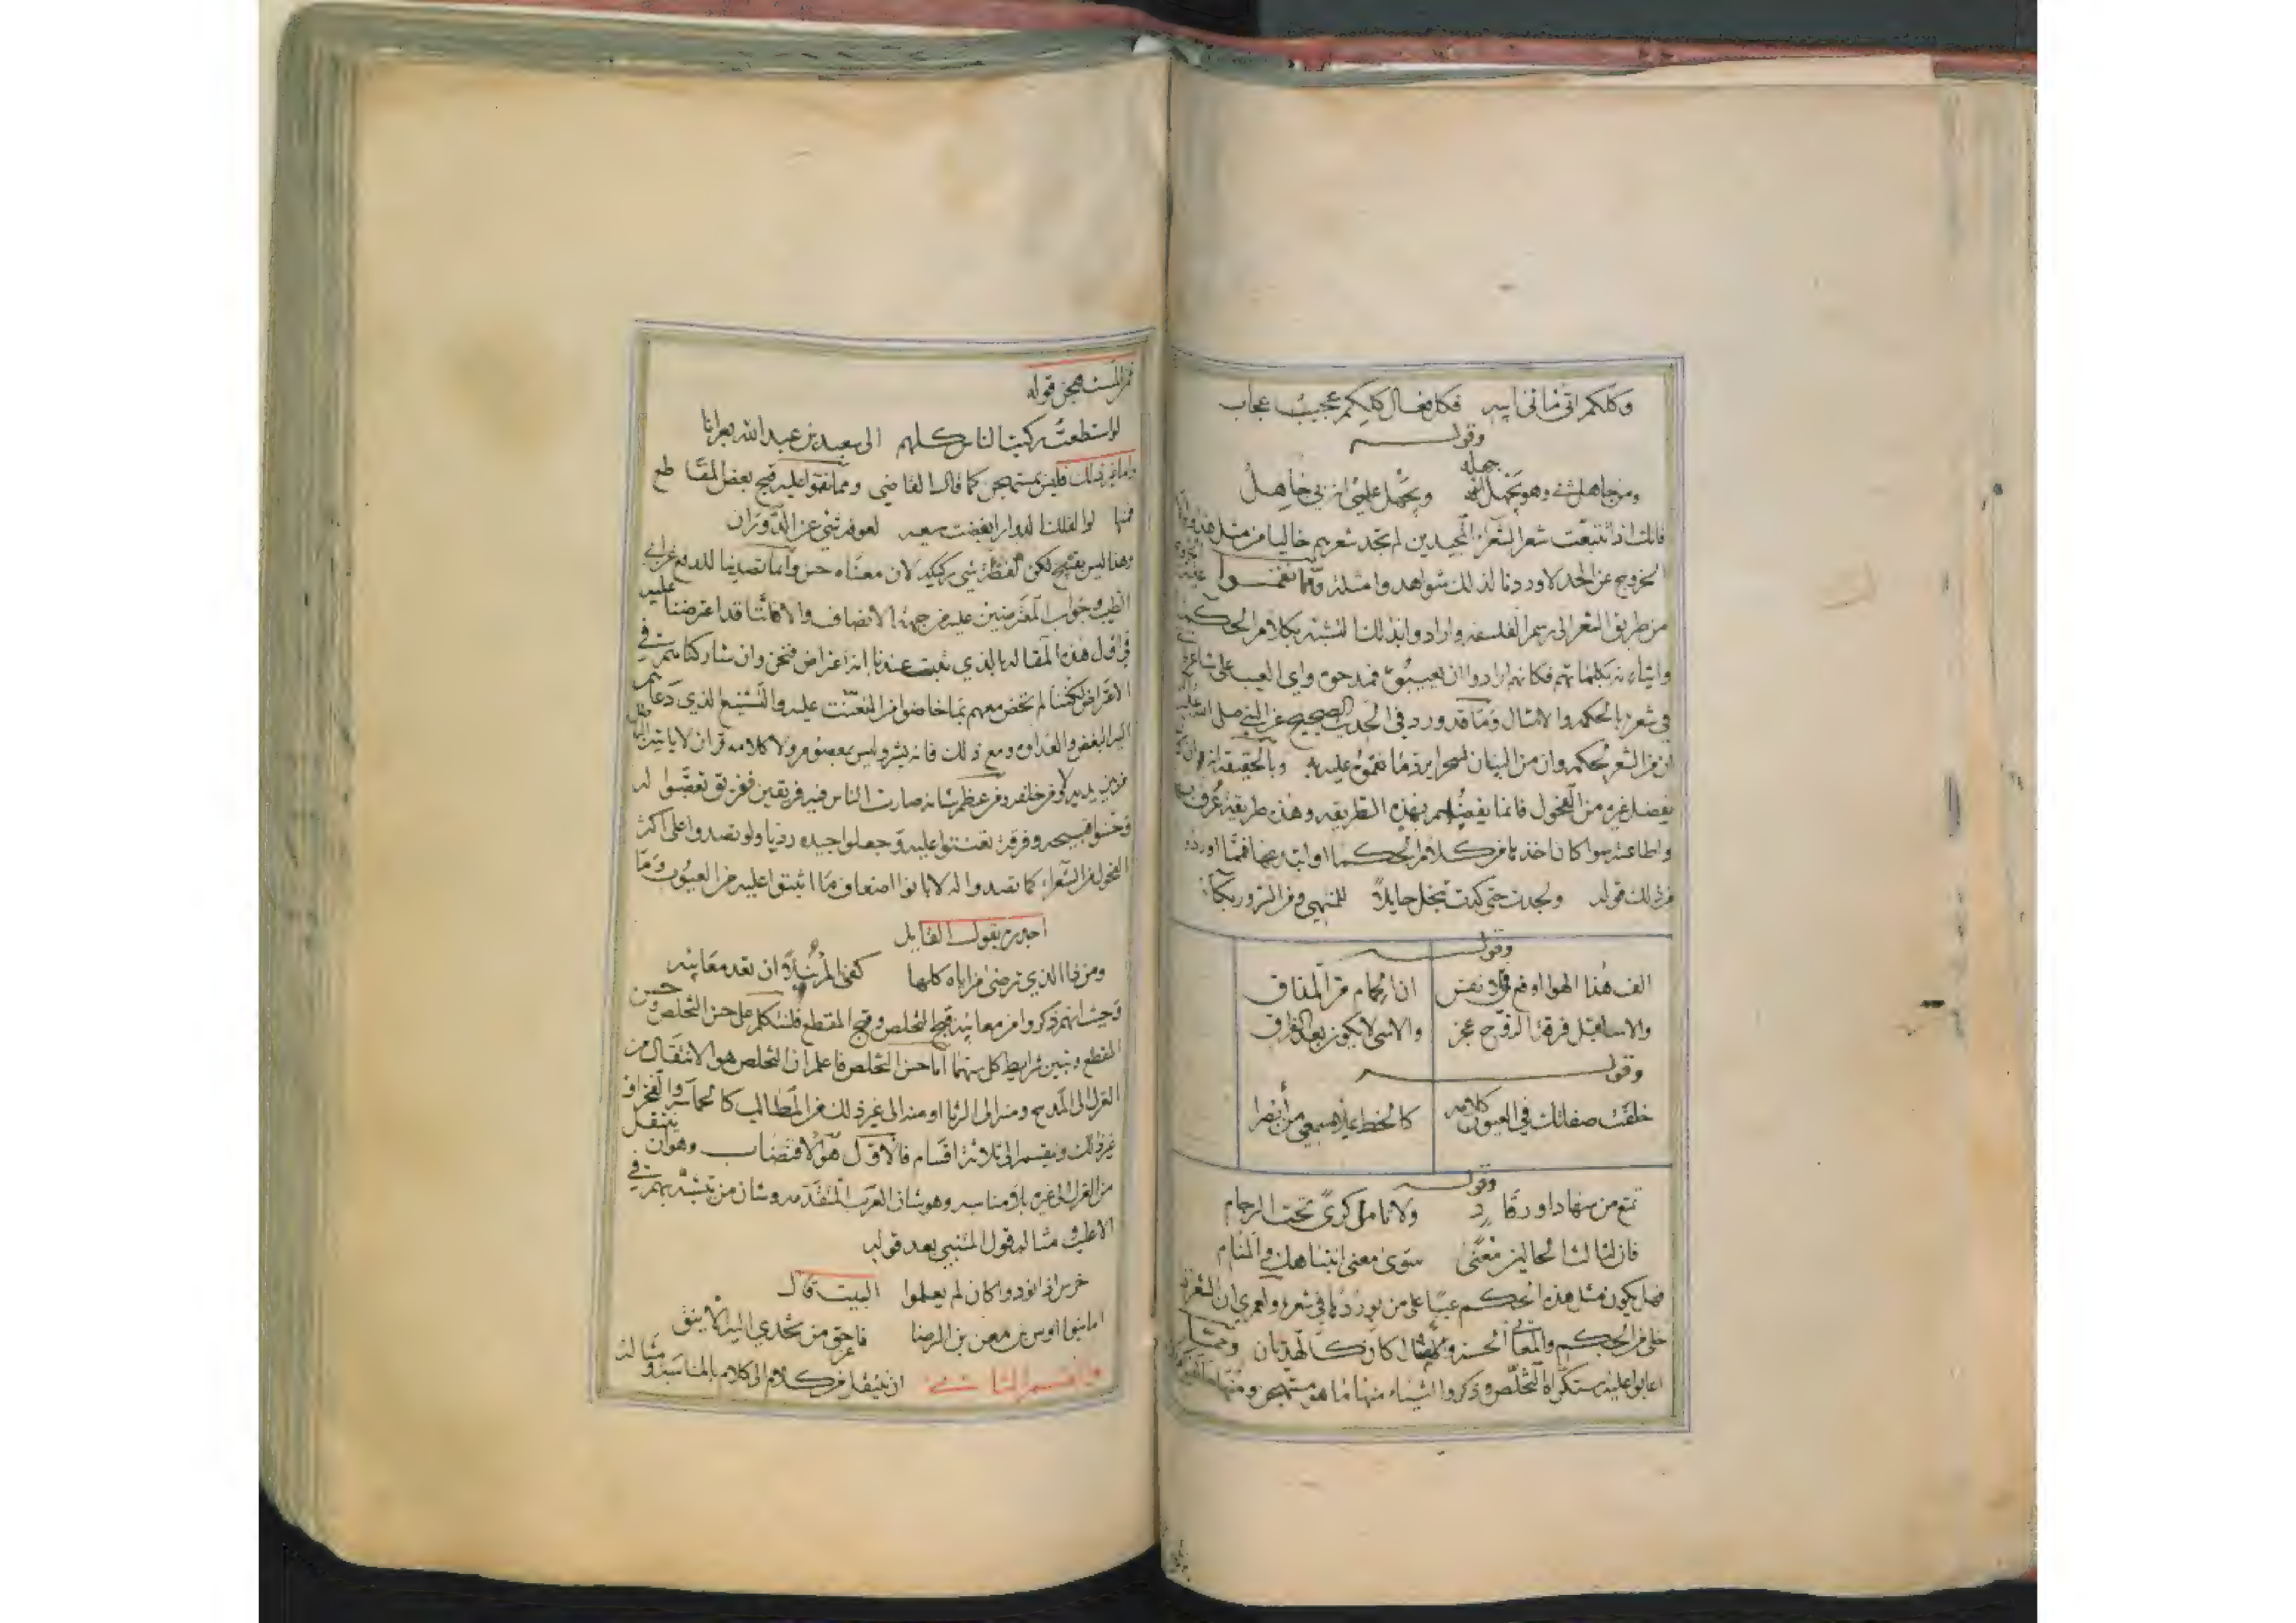 وكلكم اتى ماتى ابيه فكل فعال كلكم عجيب عجاب
وقوله
ومن جاهل بي وهو يجهل جهله ويجهل علمي انه بي جاهل
فانك اذا تتبعت شعر الشعراء المجيدين لم تجد شعرهم خاليا من مثل هذه
الخروج عن الحد لاوردنا لذلك شواهد وامثلة ومما نقموا عليه
من طريق الشعر الى رسم الفلسفه وارادوا بذلك تشبه بكلام الحكما
واتيانه بكلماتهم فكانهم ارادوا ان يعيبوه فمدحوه واي العيب على شاعر
في شعره بالحكمه والامثال وما قد ورد في الحديث الصحيح عن النبي صلى الله عليه
ان من الشعر لحكمه وان من البيان لسحرا يرد ما نقموه عليه وبالحقيقة انه
يفضل غيره من الفحول فانما يفضلهم بهذه الطريقه وهذه طريقة عرف بها
واطاعته سوا كان اخذها من كلام الحكما او ابتدعها فمما اورده
من ذلك قوله ولجدت حتى كدت تبخل حايلا للمنتهى ومن السرور بكآ
وقوله
الف هذا الهوا اوقع في الانفس ان الحمام مر المذاق
والاسا قبل فرقة الروح عجز والاسى لا يكون بعد الفراق
وقوله
خلقت صفاتك في العيون كلامه كالخط يملا مسمعي من ابصرا
وقوله
تمتع من سهاد او رقاد ولا تامل كرى تحت الرجام
فان لثالث الحالين معنى سوى معنى انتباهك والمنام
فهل يكون مثل هذه الحكم عيبا على من يوردها في شعره ولعمري ان الشعر اذا
خلى من الحكم والمعاني الحسنه والامثال كان كالهذيان ومما
اعابوا عليه استكراه التخلص وذكروا اشياء منها ما هو مستهجن ومنها
فمن المستهجن قوله
لو استطعت ركبت الناس كلهم الى سعيد بن عبد الله بعرانا
واما غير ذلك فليس بمستهجن كما قال القاضي ومما نقموا عليه قبح بعض المقاطع
فمنها لو الفلك الدوار ابغضت سعيه لعوقه شي عن الدوران
وهذا ليس بقبيح لكن لفظة شي ركيكه لان معناه حسن وانما تصدينا للدفع عن ابي
الطيب وجواب المعترضين عليه من جهة الانصاف والا فاننا قد اعترضنا عليه
في اول هذه المقاله بالذي ثبت عندنا انه اعتراض فنحن وان شاركناهم في
الاعتراض لكننا لم نخض معهم بما خاضوا من التعنت عليه والتشنيع الذي دعاهم
اليه البغض والعداوه ومع ذلك فانه بشر وليس بمعصوم ولا كلامه قران لا ياتيه الباطل
من بين يديه ولا من خلفه ومن عظم شانه صارت الناس فيه فريقين ففريق تعصبوا له
وحسنوا قبيحه وفرقة تعنتوا عليه وجعلوا جيده رديا ولو تصدوا على اكثر
الفحول من الشعراء كما تصدوا له لابانوا اضعاف ما اثبتوا عليه من العيوب وما
اجدره بقول القايل
ومن ذا الذي ترضى مزاياه كلها كفى المرء نبلا ان تعد معايبه
وحيث انهم ذكروا من معايبه قبح التخلص وقبح المقطع فلنتكلم على حسن التخلص وحسن
المقطع ونبين شرايط كل منهما اما حسن التخلص فاعلم ان التخلص هو الانتقال من
الغزل الى المديح ومنه الى الرثا او منه الى غير ذلك من المطالب كالحماسه والفخر او
غير ذلك وينقسم الى ثلاثة اقسام فالاول هو الاقتضاب وهو ان ينتقل
من الغزل الى غيره بلا مناسبه وهو شان العرب المتقدمه وشان من تشبه بهم في
الاغلب مثاله قول المتنبي بعد قوله
خرس اذا نودوا كان لم يعلموا البيت قال
اما بنوا اوس بن معن بن الرضا فاعز من تحدى اليه الاينق
والقسم الثاني ان ينتقل من كلام الى كلام بالمناسبه ومثاله